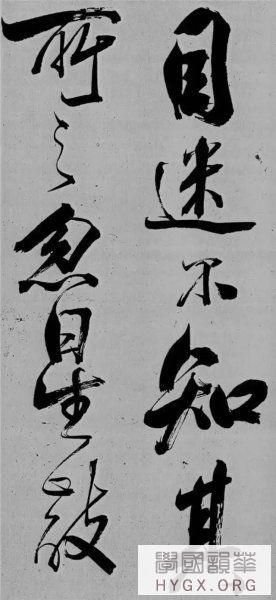 目迷不知其
所之忽星散
華韻國學
HYGX.ORG